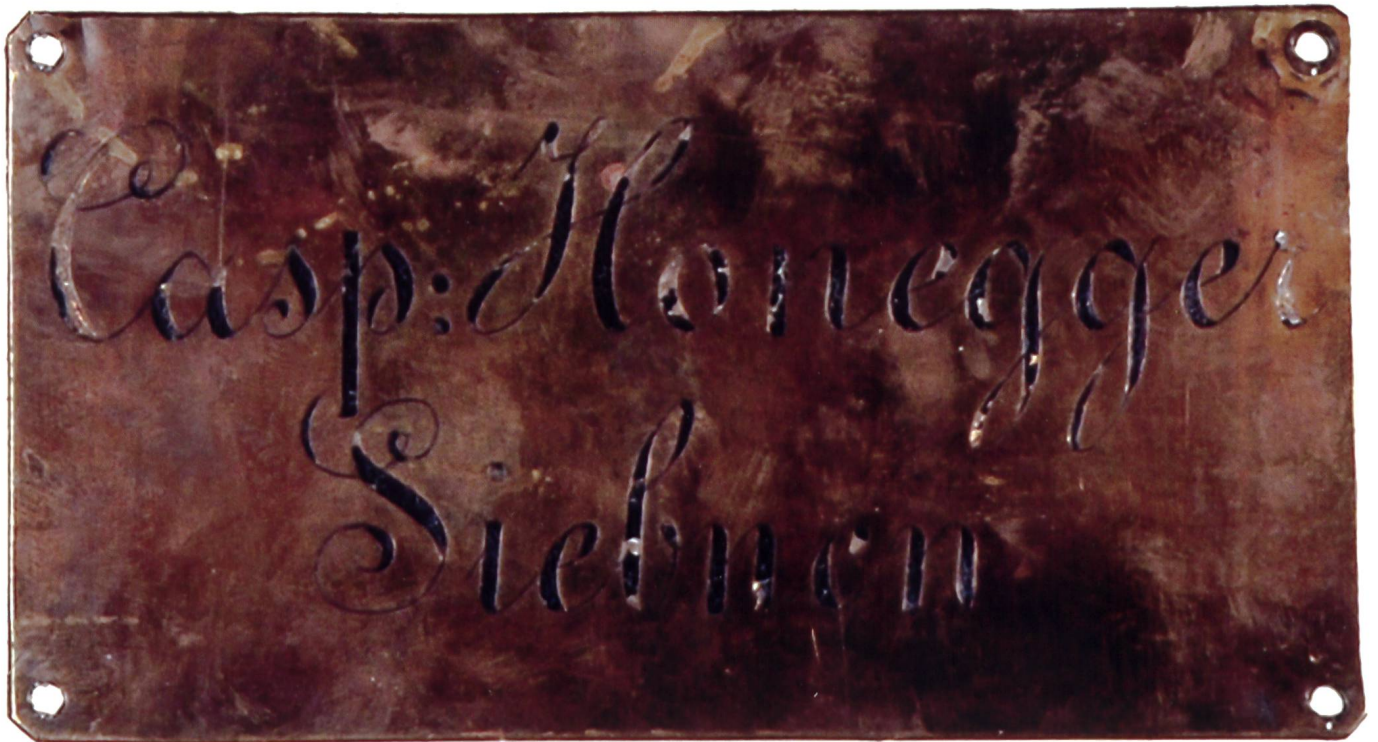 Casp: Honegger
Siebnen